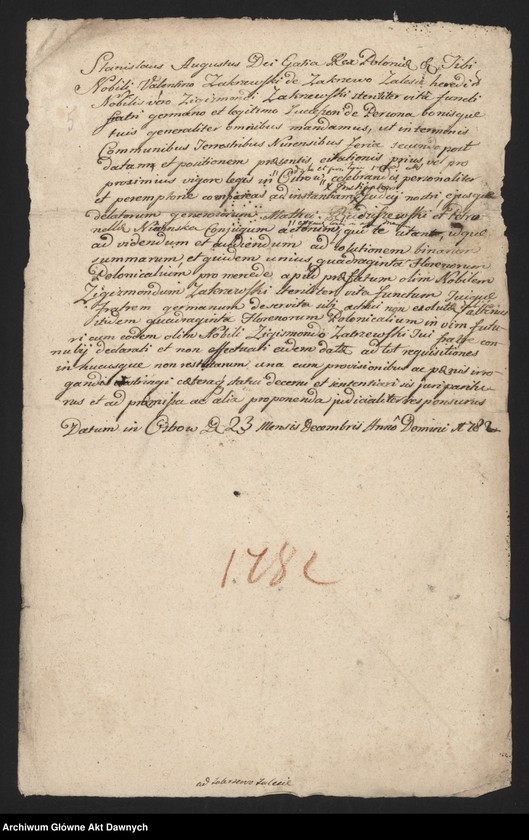 Stanislaus Augustus Dei Gratia Rex Poloniæ & Tibi
Nobili Valentino Zakrzewski de Zakrzewo Zalesie heredi
Nobilis vero Zigizmondi Zakrzewski steriliter vitâ functi
fratri germano et legitimo Succeſsori de Persona bonisque
tuis generaliter omnibus mandamus, ut in terminis
Communibus Terrestribus Nurensibus feria secunda post
datam et positionem præsentis citationis prius vel pro
proximius vigore legis in Ciżow celebrandis personaliter
et peremptorie compareas ad instantiam Judicij nostri ejusque
delatorum generosorum Mathei et Petro
nellæ Conjugum actorum, qui te citant, idque
ad videndum et audiendum ad solutionem binarum
summarum, et quidem unius quadraginta Florenorum
Polonicalium pro mercede apud præfatum olim Nobilem
Zigizmondum Zakrzewski steriliter vita functum Tuique
fratrem germanum deservita sibj adhuc non exoluta, alterius
itidem quadraginta Florenorum Polonicalium in vim futu
ri cum eodem olim Nobili Zigismondo Zakrzewski Tui fratre con
nubij declarati et non effectuati eidem data ad tot requisitiones
in hucusque non restitutarum una cum provisionibus ac pænis irro
gandis adstringi cæteraq statui decerni et sententiari sis juri paritu
rus et ad præmiſsa ac alia proponenda judicialiter responsurus
Datum in Ciżow D 23 Mensis Decembris Anno Domini A 1782
1782
ad Zakrzewo Zalesie
Archiwum Główne Akt Dawnych